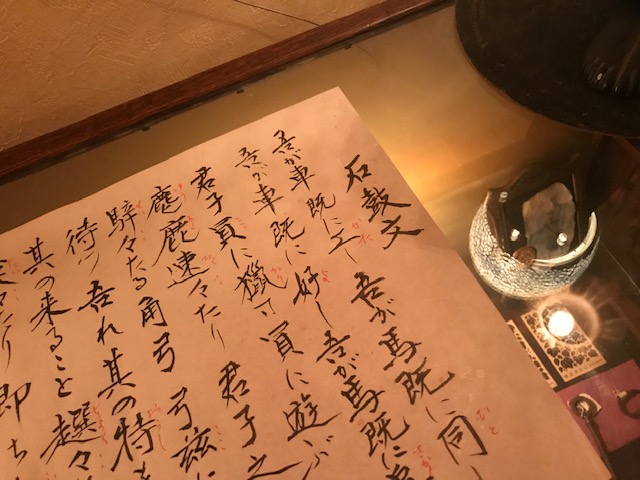 石鼓文
吾が車 既に工し 吾が馬 既に同
吾が車 既に好し 吾が馬 既に
君子員に獵す 員に遊ぶ
麀鹿速々たり 君子之
騂々たる角弓 弓茲に
待つ 吾れ其の特を
其の来ること
たり 即ち